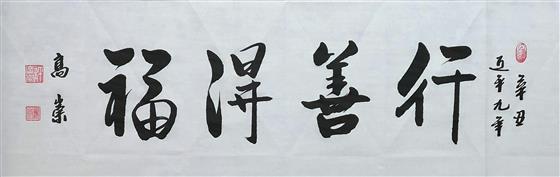 辛丑
九年
行善得福
高崇